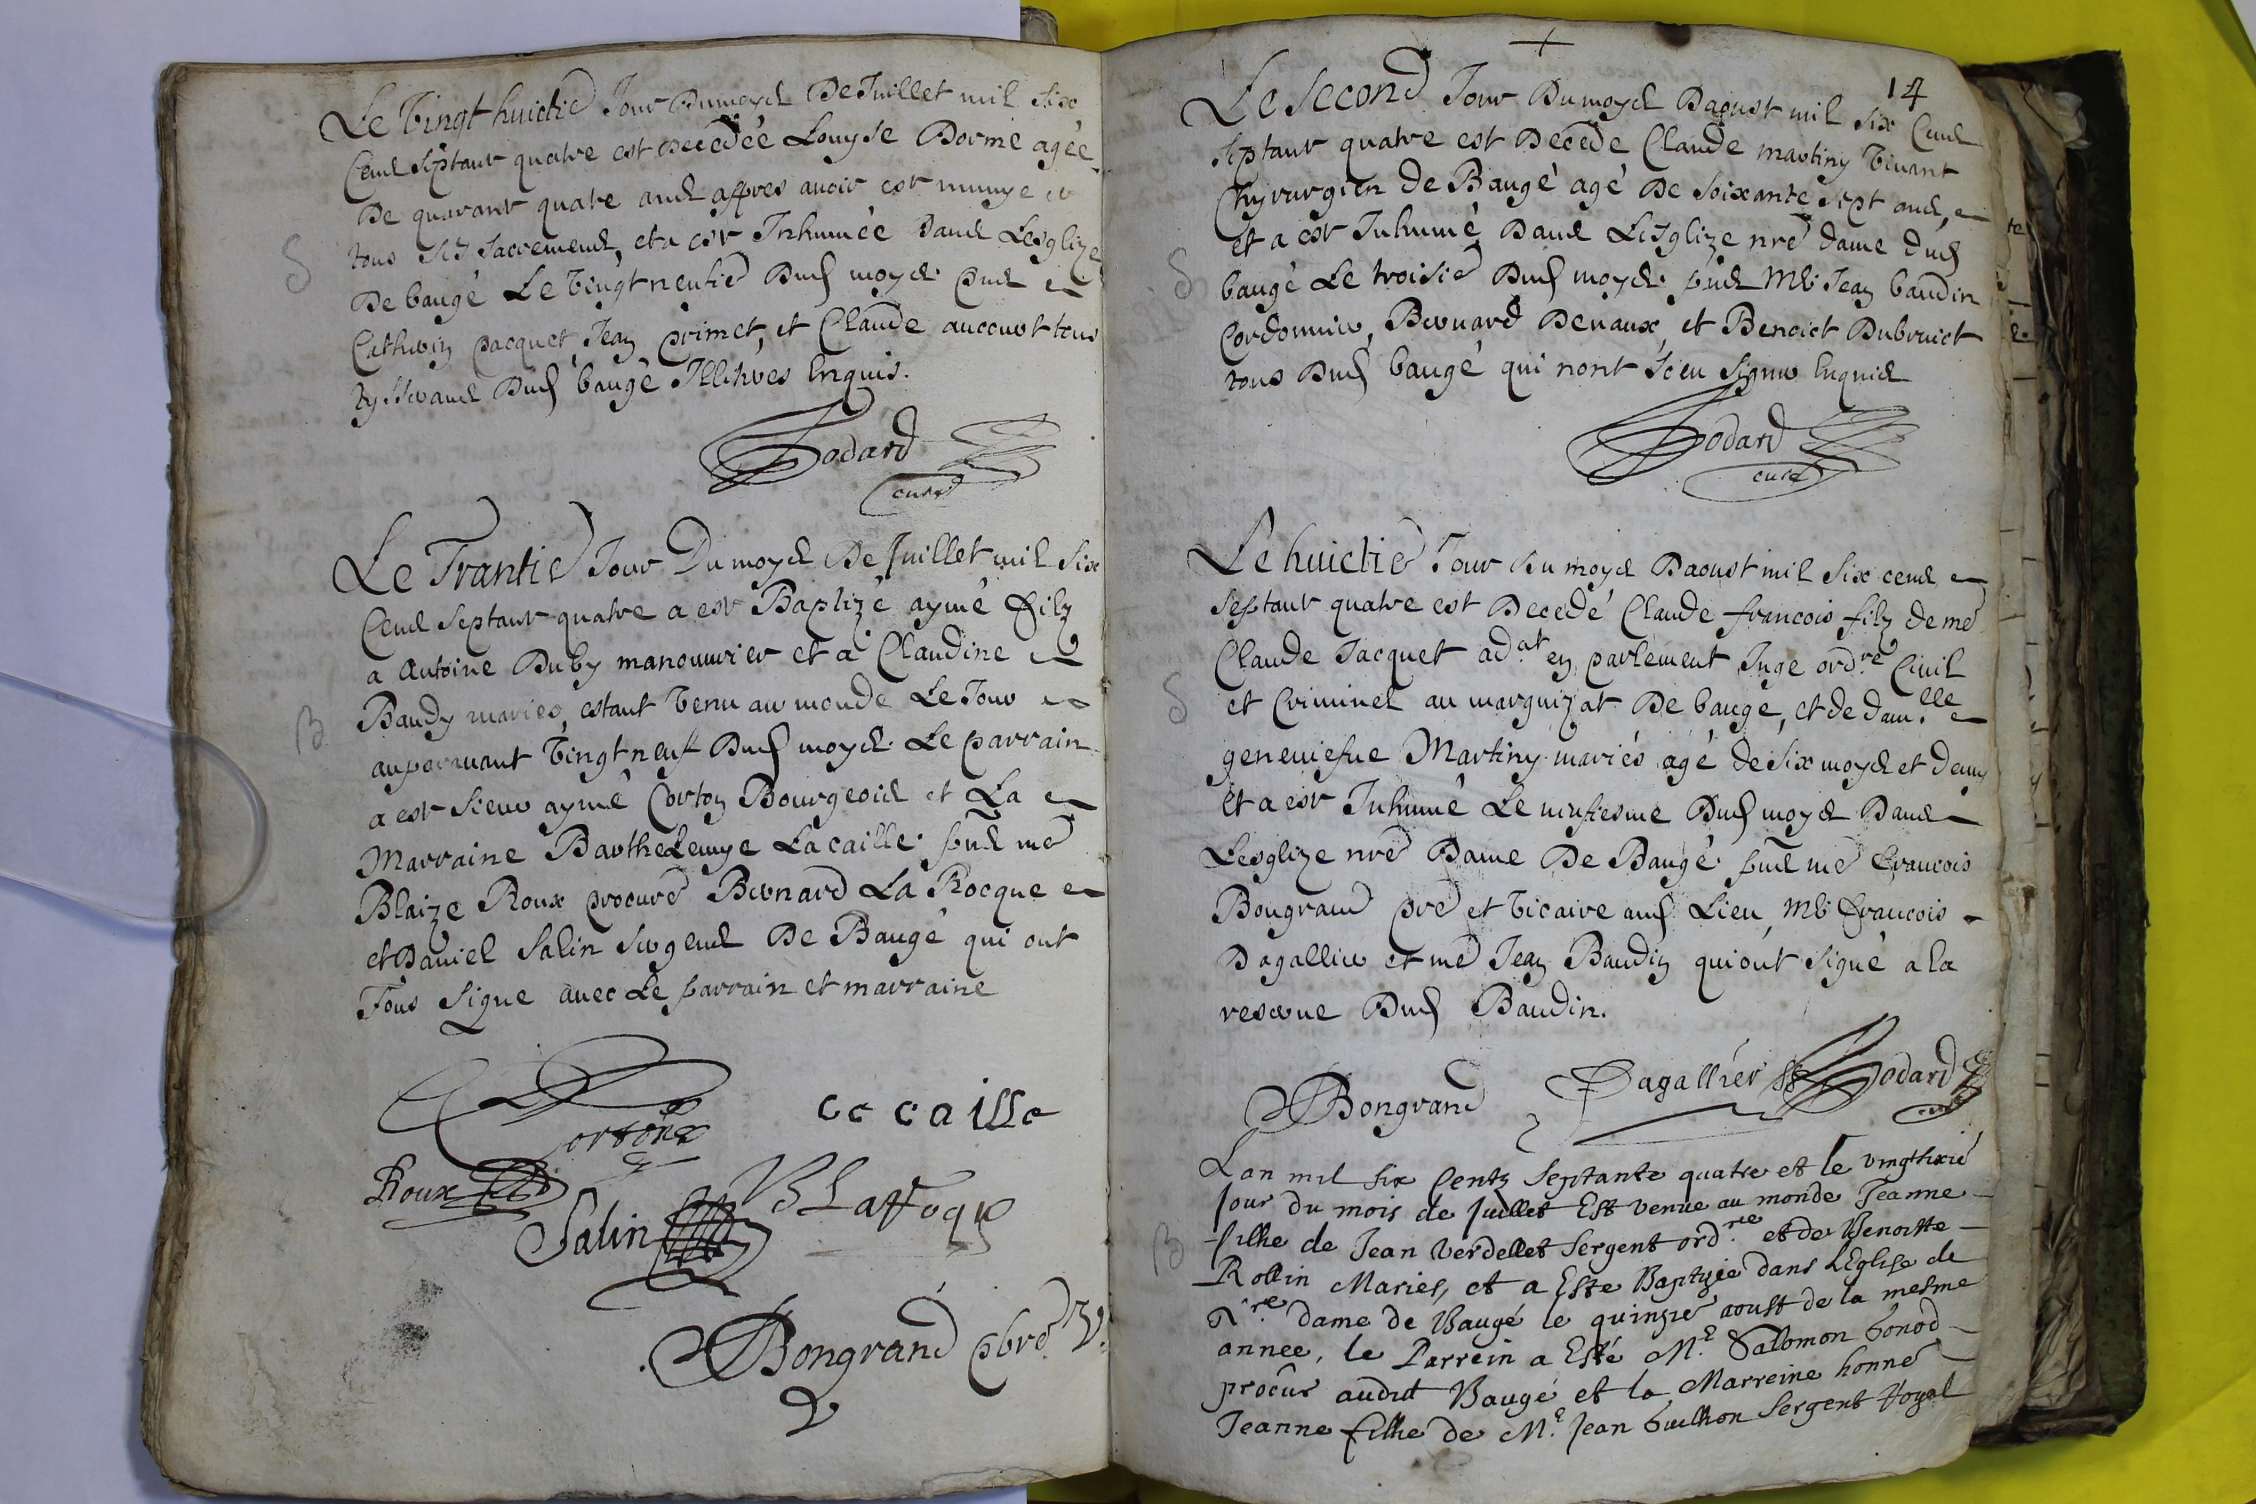 Le Vingt huictie Jour Dumoys De Juillet mil six
Cens Septante quatre est Decedée Louyse Dorme agée
De quarante quatre ans appres avoir este munye de
tous ses sacremens, et a este Inhumée dans Lesglize
De baugé Le Vingt neufie Dud moys. pns
Catherin pacquet Jean primet, et Claude aucourt tous
tysserans Dud baugé Illitires Enquis.
Godard
curé
Le Trantie Jour Du moys De Juillet mil six
Cens Septante quatre a este Baptizé aymé Filz
a Antoine Duby manouvrier et a Claudine
Baudy mariés, estant Venu au monde Le Jour
auparavant Vingt neuf Dud moys. Le parrain
a este sieur aymé Corton Bourgeois et La
Marraine Barthelemye Lacaille. pns me
Blaize Roux procure Bernard La Rocque
et Daniel Salin sergens De Baugé qui ont
Tous Signe avec Le parrain et marraine
Corton
cc caille
Roux
B Larroque
Salin
Bongrand pbre V.
14
Le second Jour Dumoys Daoust mil six Cens
Septante quatre est Decedé Claude martiny Vivant
Chyrurgien de Baugé agé De soixante sept ans,
et a este Inhumé Dans Lesglize nre dame dud
baugé Le troisie Dud moys. pns Me Jean baudin
Cordonnier, Bernard Devaux, et Benoict Dubruict
tous Dud baugé qui nont sceu signer Enquis
Godard
curé
Le huictie Jour du moys Daoust mil six cens
Septante quatre est Decedé Claude francois filz de me
Claude Jacquet adat en parlement Juge ordre Civil
et Criminel au marquizat De baugé, et de damlle
geneviefve Martiny mariés agé de six moys et demy
Et a este Inhumé Le neufiesme Dud moys Dans
Lesglize nre Dame De Baugé. pns me francois
Bongrand pre et Vicaire aud Lieu, Me francois
Dagallier et me Jean Baudin qui ont Signé a la
reserve Dud Baudin.
Bongrand
Dagallier
Godard
Lan mil six Centz Septante quatre et le vingthuié
Jour du mois de Juillet Est venue au monde Jeanne
fillhe de Jean Verdellet Sergent ordre et de Benoitte
Rollin Mariés, et a Este Baptizée dans LEglise de
Nre dame de Baugé le quinzie aoust de la mesme
annee, le Parrein a Esté Me Salomon bonod
procur audit Baugé et la Marreine honne
Jeanne fillhe de Me Jean Guillion Sergent Royal